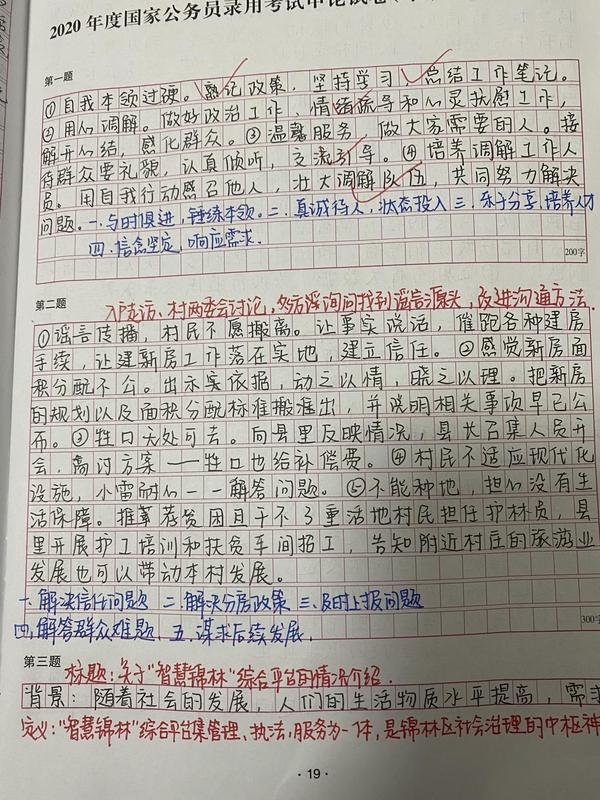 2020年度国家公务员录用考试申论试卷
第一题
①自我本领过硬。熟记政策，坚持学习，总结工作笔记。
②用心调解。做好政治工作，情绪疏导和心灵抚慰工作，
解开心结，感化群众。③温馨服务，做大家需要的人。接
待群众要礼貌，认真倾听，交流引导。④培养调解工作人
员。用自我行动感召他人，壮大调解队伍，共同努力解决
问题。一.与时俱进，锤练本领。二.真诚待人，状态投入 三.乐于分享.培养人才
四.信念坚定，响应需求.
200字
第二题
入户走访、村两委会讨论，多方询问找到谣言源头，改进沟通方法.
①谣言传播，村民不愿搬离。让事实说话，催跑各种建房
手续，让建新房工作落在实地，建立信任。②感觉新房面
积分配不公。出示实依据，动之以情，晓之以理。把新房
的规划以及面积分配标准搬出，并说明相关事项早已公
布。③牲口无处可去。向县里反映情况，县长召集人员开
会，商讨方案——牲口也给补偿费。④村民不适应现代化
设施，小雷耐心一一解答问题。⑤不能种地，担心没有生
活保障。推荐贫困且干不了重活地村民担任护林员，县
里开展护工培训和扶贫车间招工，告知附近村庄的旅游业
发展也可以带动本村发展。
一.解决信任问题 二.解决分房政策 三.及时上报问题
四.解答群众难题. 五.谋求后续发展.
300字
第三题
标题：关于“智慧锦林”综合平台的情况介绍.
背景：随着社会的发展，人们的生活物质水平提高，需求
定义：“智慧锦林”综合平台集管理、执法，服务为一体，是锦林区社会治理的中枢神
·19·